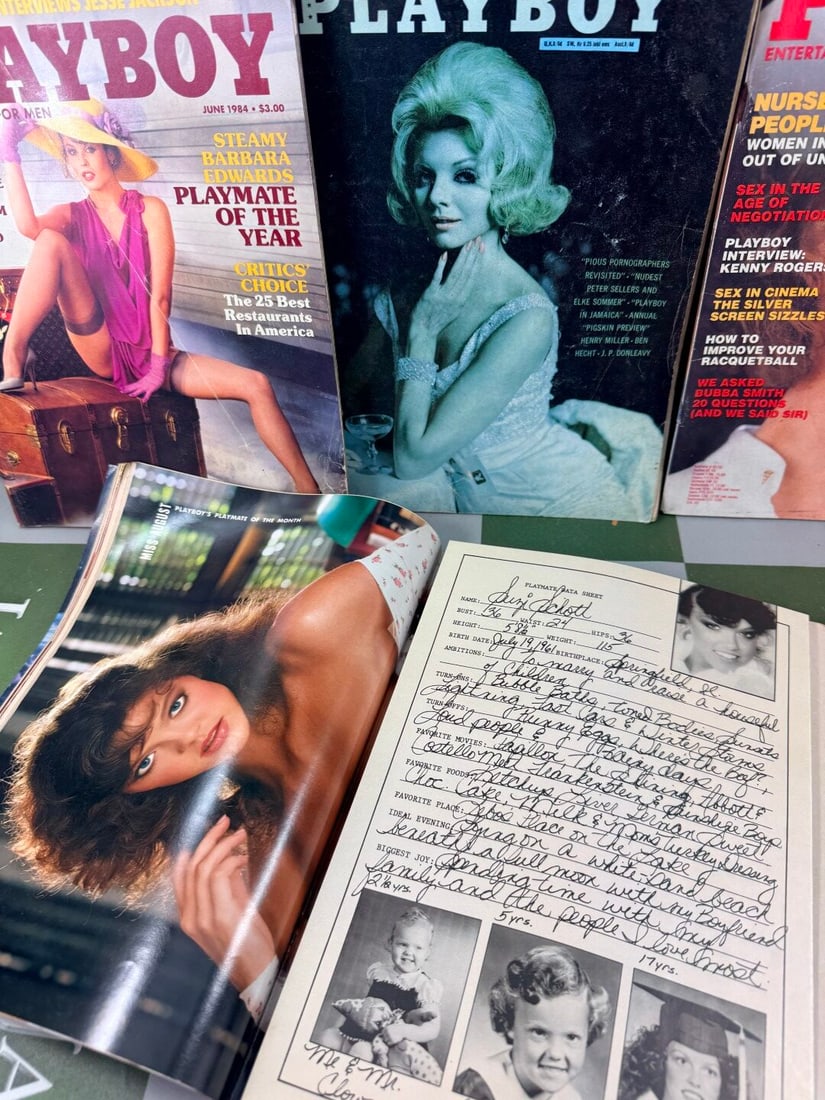 INTERVIEWS JESSE JACKSON
AYBOY
FOR MEN
JUNE 1984 • $3.00
STEAMY
BARBARA
EDWARDS
PLAYMATE
OF THE
YEAR
CRITICS'
CHOICE
The 25 Best
Restaurants
In America
PLAYBOY
"PIOUS PORNOGRAPHERS
REVISITED" • "NUDEST
PETER SELLERS AND
ELKE SOMMER" • "PLAYBOY
IN JAMAICA" • ANNUAL
"PIGSKIN PREVIEW"
HENRY MILLER • BEN
HECHT • J. P. DONLEAVY
ENTERTA
NURSE
PEOPL
WOMEN IN
OUT OF UN
SEX IN THE
AGE OF
NEGOTIATION
PLAYBOY
INTERVIEW:
KENNY ROGERS
SEX IN CINEMA
THE SILVER
SCREEN SIZZLES
HOW TO
IMPROVE YOUR
RACQUETBALL
WE ASKED
BUBBA SMITH
20 QUESTIONS
(AND WE SAID SIR)
MISS AUGUST PLAYBOY'S PLAYMATE OF THE MONTH
PLAYMATE DATA SHEET
NAME: Suzi Schott
BUST: 36 WAIST: 24 HIPS: 36
HEIGHT: 5'8½ WEIGHT: 115
BIRTH DATE: July 19, 1961 BIRTHPLACE: Springfield, IL.
AMBITIONS: To marry and raise a houseful
of Children
TURN-ONS: Bubble Baths, Toned Bodies, Sunsets
Lightning, Fast Cars & Winter Storms
TURN-OFFS: Runny Eggs, Where's the Beef, &
Loud people & Rainy days
FAVORITE MOVIES: The Shining, Abbott &
Costello Meet Frankenstein &
FAVORITE FOODS: German Sweet
Choc. Cake, Milk & Moms Turkey Dressing
FAVORITE PLACE: Place on The Lake
IDEAL EVENING: on a white sand beach
beneath a full moon with my Boyfriend
BIGGEST JOY: Spending time with my
family and the people I love most.
2½ yrs.
5 yrs.
17 yrs.
Me & Mr.